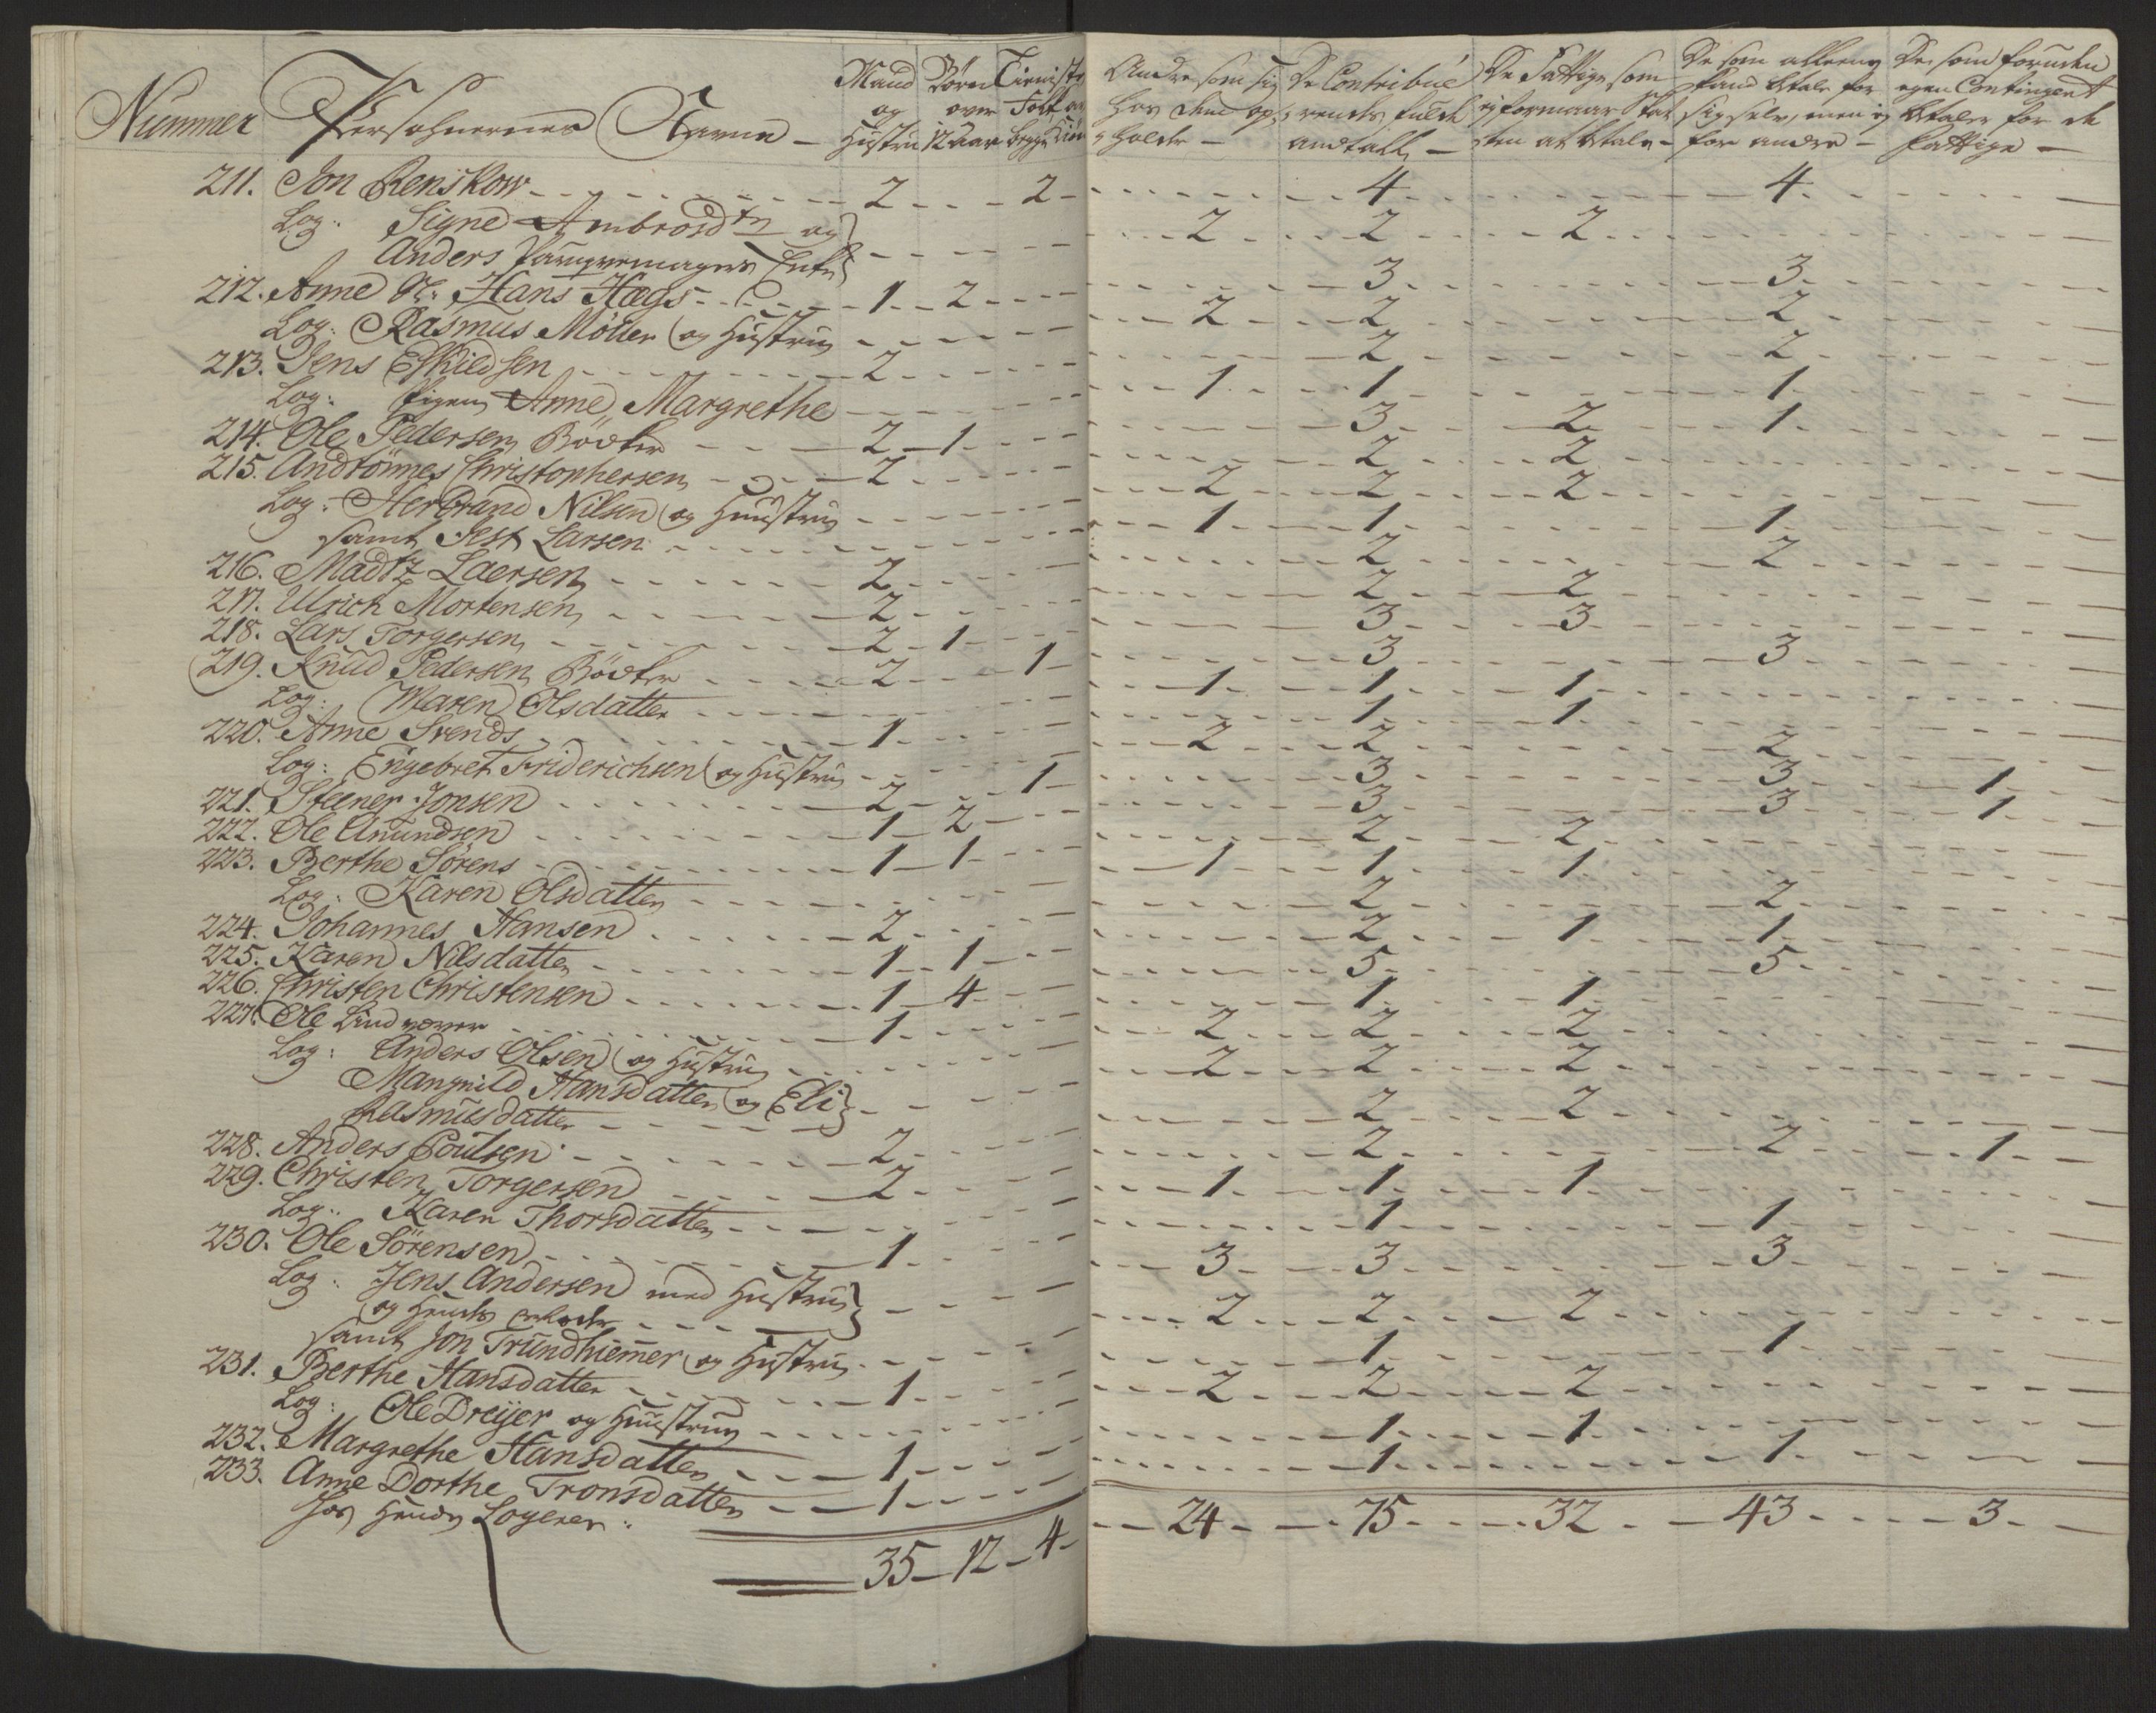 Nummer Persohnernes Navne — Mand og Hustru Børn over 12 Aar Tieniste Folk af begge Kiön Andre som sig hos dem op, holder — De Contribuerendes fulde andtall — De Fattige som ej formaar Skatten at betale — De som alleene kand betale for sig selv, men ej for andre — De som foruden egen Contingent betaler for de Fattige —
211. Jon Renskow - - - 2 - - - 2 - - - - 4 - - - - 4 - - -
Log: Signe Ambrosdtr og
Anders Parugvemagers Enke - - - 2 - - 2 - - 2 - - -
212. Anne Sl. Hans Hægs - - 1 - 2 - - - 3 - - - 3 - - -
Log: Rasmus Möller og Hustru - - - 2 - - 2 - - - 2 - -
213. Jens Eskildsen - - - 2 - - - 2 - - - 2 - -
Log: Pigen Anne Margrethe - - - 1 - - 1 - - - 1 - -
214. Ole Pedersen Bödker - - 2 - 1 - - - 3 - - 2 - - 1 -
215. Andtönnes Christophersen - - 2 - - - 2 - - 2 - - -
Log: Herbrand Nilsen og Huustru - - - 2 - - 2 - - 2 - - -
samt Jest Larsen - - - 1 - - 1 - - - 1 - -
216. Madtz Laersen - - - 2 - - - 2 - - - 2 - -
217. Ulrich Mortensen - - - 2 - - - 2 - - 2 - - -
218. Lars Torgersen - - - 2 - 1 - - - 3 - - 3 - - -
219. Knud Pedersen Bödker - - - 2 - - 1 - - - 3 - - - 3 - -
Log: Maren Olsdatter - - - 1 - - 1 - - 1 - - -
220. Anne Svends - - - 1 - - - 1 - - 1 - - -
Log: Engebret Friderichsen og Hustru - - - 2 - - 2 - - - 2 - -
221. Steener Jonsen - - - 2 - - 1 - - - 3 - - - 3 - - 1 -
222. Ole Amundsen - - - 1 - 2 - - - 3 - - - 3 - - 1 -
223. Berthe Sörens - - - 1 - 1 - - - 2 - - 2 - - -
Log: Karen Olsdatter - - - 1 - - 1 - - 1 - - -
224. Johannes Hansen - - - 2 - - - 2 - - - 2 - -
225. Karen Nilsdatter - - - 1 - 1 - - - 2 - - 1 - - 1 - -
226. Christen Christensen - - - 1 - 4 - - - 5 - - - 5 - -
227. Ole Lindvæver - - - 1 - - - 1 - - 1 - - -
Log: Anders Olsen og Hustru - - - 2 - - 2 - - 2 - - -
Mangnild Hansdatter og Eli
Rasmusdatter - - - 2 - - 2 - - 2 - - -
228. Anders Poulsen - - - 2 - - - 2 - - 2 - - -
229. Christen Torgersen - - - 2 - - - 2 - - - 2 - - 1 -
Log: Karen Thorsdatter - - - 1 - - 1 - - 1 - - -
230. Ole Sörensen - - - 1 - - - 1 - - - 1 - -
Log: Jens Andersen med Hustru
og Hendes - - - 3 - - 3 - - - 3 - -
samt Jon Trundhiemer og Hustru - - - 2 - - 2 - - 2 - - -
231. Berthe Hansdatter - - - 1 - - - 1 - - - 1 - -
Log: Ole Dreijer og Huustru - - - 2 - - 2 - - 2 - - -
232. Margrethe Hansdatter - - - 1 - - - 1 - - 1 - - -
233. Anne Dorthe Tronsdatter - - 1 - - - 1 - - - 1 - -
hos Hende Logerer:
35 - 12 - 4 - - 24 - - 75 - - 32 - - 43 - - 3 -